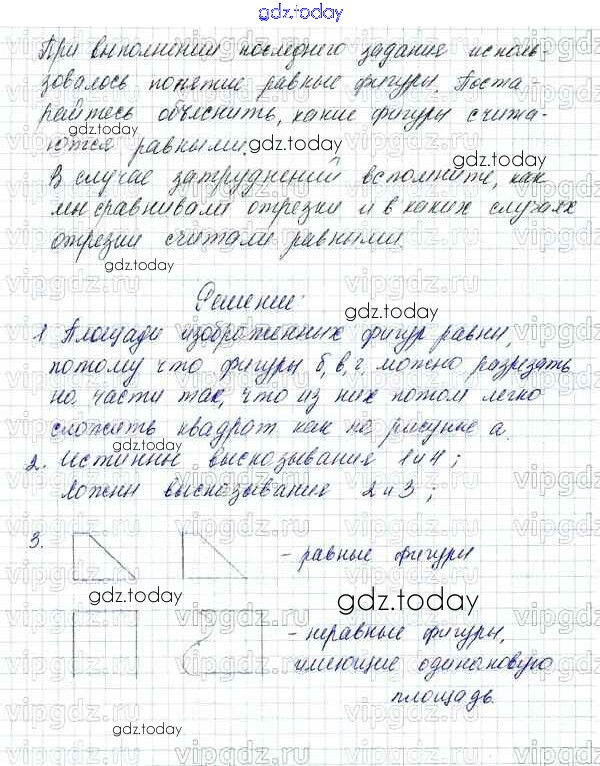 gdz.today
При выполнении последнего задания исполь-
зовалось понятие равные фигуры. Поста-
райтесь объяснить, какие фигуры счита-
ются равными.
В случае затруднений вспомните, как
мы сравнивали отрезки и в каких случаях
отрезки считали равными.
Решение:
1 Площади изображенных фигур равны,
потому что фигуры б, в, г, можно разрезать
на части так, что из них потом легко
сложить квадрат как на рисунке а.
2. Истинны высказывания 1 и 4;
Ложны высказывания 2 и 3;
3.
- равные фигуры
- неравные фигуры,
имеющие одинаковую
площадь.
gdz.today
gdz.today
gdz.today
gdz.today
gdz.today
gdz.today
gdz.today
gdz.today
gdz.today
gdz.today